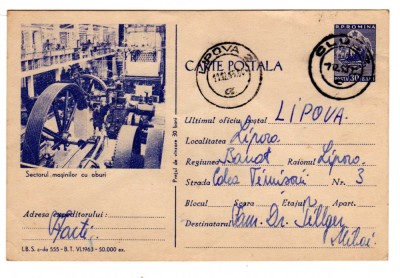 CARTE POSTALA
R.P. ROMINA
LIPOVA
CLUJ
Sectorul mașinilor cu aburi
Prețul de vînzare 30 bani
Ultimul oficiu poștal LIPOVA.
Localitatea Lipova
Regiunea Banat Raionul Lipova
Strada Calea Timișorii Nr. 3
Blocul Scara Etajul Apart.
Destinatarul Fam. Dr.
Mihai
Adresa expeditorului:
I.B.S. c-da 555 - B.T. VI.1963 - 50.000 ex.